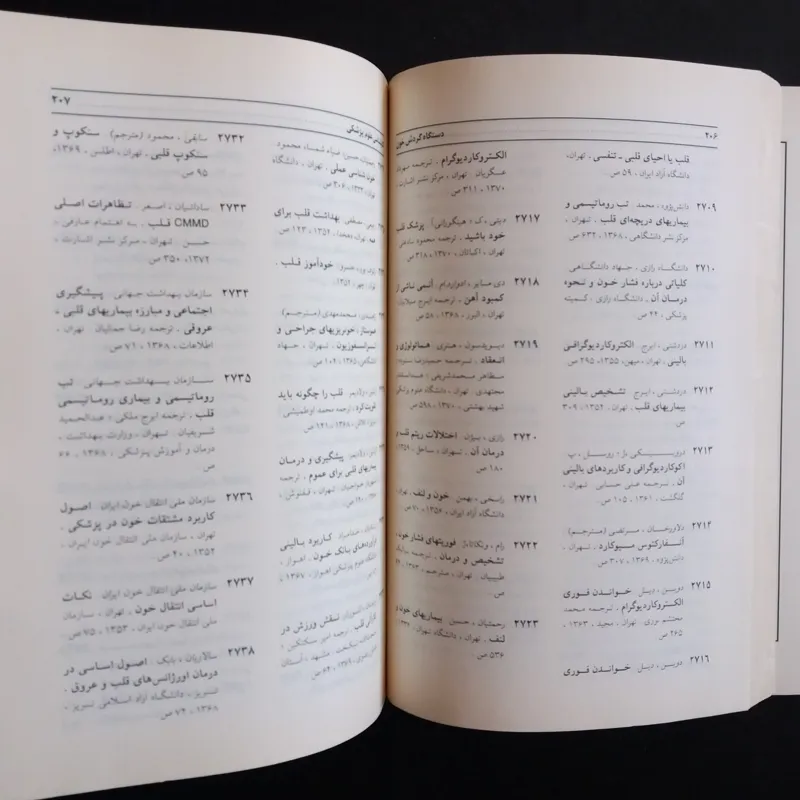 ۲۰۶
دستگاه گردش خون
قلب یا احیای قلبی ـ تنفسی، تهران،
دانشگاه آزاد ایران، ۵۹ ص.
۲۷۰۹ دانش‌پژوه، محمد. تب روماتیسمی و
بیماریهای دریچه‌ای قلب. تهران،
مرکز نشر دانشگاهی، ۱۳۶۸، ۶۳۲ ص.
۲۷۱۰ دانشگاه رازی، جهاد دانشگاهی.
کلیاتی درباره فشار خون و نحوه
درمان آن. دانشگاه رازی، کمیته
پزشکی، ۴۲ ص.
۲۷۱۱ دردشتی، ایرج. الکتروکاردیوگرافی
بالینی. تهران، میهن، ۱۳۵۵، ۲۹۵ ص.
۲۷۱۲ دردشتی، ایرج. تشخیص بالینی
بیماریهای قلب. تهران، ۱۳۵۲، ۳۰۹
ص.
۲۷۱۳ دروبینسکی، ژ؛ روسل، پ.
اکوکاردیوگرافی و کاربردهای بالینی
آن. ترجمه علی حسابی. تهران،
گلگشت، ۱۳۶۱، ۱۰۵ ص.
۲۷۱۴ دلاورخان، مرتضی (مترجم).
آنفارکتوس میوکارد. تهران،
دانش‌پژوه، ۱۳۶۹، ۳۰۷ ص.
۲۷۱۵ دوبین، دیل. خواندن فوری
الکتروکاردیوگرام. ترجمه محمد
محتشم نوری. تهران، مجید، ۱۳۶۳،
۲۶۵ ص.
۲۷۱۶ دوبین، دیل. خواندن فوری
الکتروکاردیوگرام. ترجمه
عسگریان. تهران، مرکز نشر اشارت،
۱۳۷۰، ۳۱۱ ص.
۲۷۱۷ پزشک قلب
خود باشید. ترجمه محمود
تهران، اکباتان، ۱۳۷۰، ۳۱۸ ص.
۲۷۱۸ دی سایر، ادوارد.ام. آنمی ناشی از
کمبود آهن. ترجمه ایرج
تهران، البرز، ۱۳۶۸، ۵۸ ص.
۲۷۱۹ دیویدسون، هنری. هماتولوژی و
انعقاد. ترجمه حمیدرضا
مظاهر محمدشریفی،
مجتهدی. تهران، دانشگاه علوم پزشکی
شهید بهشتی، ۱۳۷۰، ۵۹۸ ص.
۲۷۲۰ رازی، بیژن. اختلالات ریتم قلب و
درمان آن. تهران، ساحل، ۱۳۵۹،
۱۸۰ ص.
۲۷۲۱ راسخی، بهمن. خون و لنف. تهران،
دانشگاه آزاد ایران، ۱۳۵۶، ۷۱ ص.
۲۷۲۲ رام، ونکاتا. فوریتهای فشار خون،
تشخیص و درمان. ترجمه
طبیبیان. تهران، مترجم، ۱۳۶۳،
ص.
۲۷۲۳ رحمتیان، حسین. بیماریهای خون و
لنف. تهران، دانشگاه تهران،
۵۳۶ ص.
۲۰۷
علوم پزشکی
ضیاء شمساء، محمود.
خون شناسی عملی. تهران، دانشگاه
تهران، ۱۳۳۲، ۲۰۶ ص.
بهداشت قلب برای
همه. تهران، دهخدا، ۱۳۵۲، ۱۲۳ ص.
خودآموز قلب.
محمدمهدی (مترجم).
هموستاز، خونریزیهای جراحی و
ترانسفوزیون. تهران، جهاد
دانشگاهی، ۱۳۶۵، ۱۰۴ ص.
قلب را چگونه باید
تقویت کرد. ترجمه محمد
۱۳۶۸، ۱۴۱ ص.
پیشگیری و درمان
بیماریهای قلبی برای عموم. ترجمه
تهران، ققنوس،
کاربرد بالینی
فرآورده‌های بانک خون. اهواز،
علوم پزشکی اهواز، ۱۳۶۷،
نقش ورزش در
کارآئی قلب. ترجمه امیر
مشهد، آستان
قدس رضوی، ۱۳۶۹، ۶۴ ص.
۲۷۳۲ سابقی، محمود (مترجم). سنکوپ و
سنکوپ قلبی. تهران، اطلس، ۱۳۶۹،
۹۵ ص.
۲۷۳۳ ساداتیان، اصغر. تظاهرات اصلی
CMMD قلب. به اهتمام عارفی،
حسن. تهران، مرکز نشر اشارت،
۱۳۷۲، ۳۵۰ ص.
۲۷۳۴ سازمان بهداشت جهانی. پیشگیری
اجتماعی و مبارزه بیماریهای قلبی،
عروقی. ترجمه رضا جمالیان. تهران،
اطلاعات، ۱۳۶۸، ۷۱ ص.
۲۷۳۵ سازمان بهداشت جهانی. تب
روماتیسمی و بیماری روماتیسمی
قلب. ترجمه ایرج ملکی؛ عبدالحمید
شریفیان. تهران، وزارت بهداشت،
درمان و آموزش پزشکی، ۱۳۶۸، ۶۶
ص.
۲۷۳۶ سازمان ملی انتقال خون ایران. اصول
کاربرد مشتقات خون در پزشکی.
تهران، سازمان ملی انتقال خون ایران،
۱۳۵۴، ۴۰ ص.
۲۷۳۷ سازمان ملی انتقال خون ایران. نکات
اساسی انتقال خون. تهران، سازمان
ملی انتقال خون ایران، ۱۳۵۳، ۷۵ ص.
۲۷۳۸ سالاریان، بابک. اصول اساسی در
درمان اورژانس‌های قلب و عروق.
تبریز، دانشگاه آزاد اسلامی تبریز،
۱۳۶۸، ۷۴ ص.